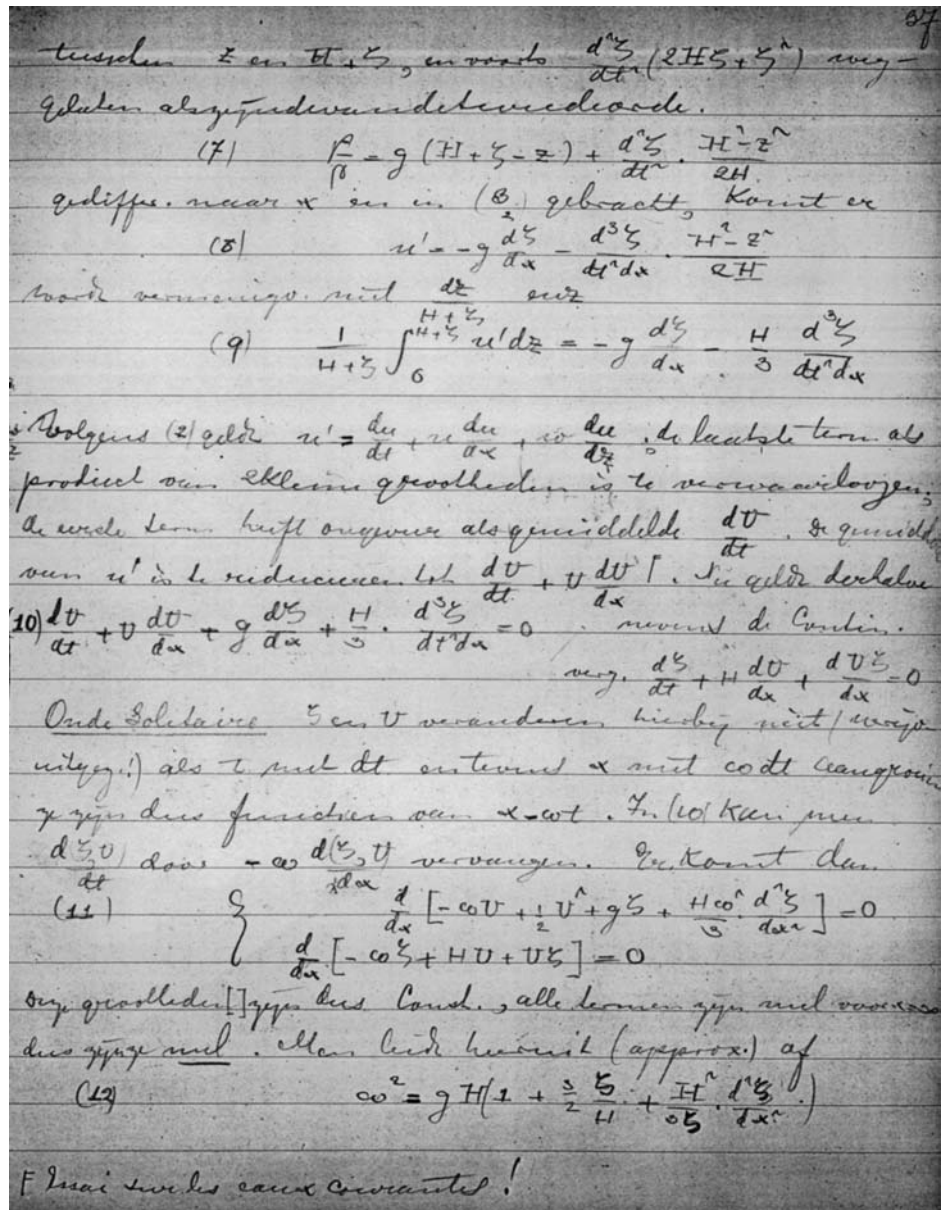 37
tusschen z en H+ζ, en voorts d²ζ/dt² (2Hζ+ζ²) weg-
gelaten als zijnde van de tweede orde.
(7) p/ρ = g (H+ζ-z) + d²ζ/dt² · H²-z²/2H
gediffer. naar x en in (3/2) gebracht, komt er
(8) u' = -g dζ/dx - d³ζ/dt²dx · H²-z²/2H
wordt vermenigv. met dz/H+ζ enz
(9) 1/H+ζ ∫₀^{H+ζ} u'dz = -g dζ/dx - H/3 d³ζ/dt²dx
Volgens (2) geldt u' = du/dt + u du/dx + w du/dz, de laatste term als
product van 2 kleine grootheden is te verwaarloozen;
de eerste term heeft ongeveer als gemiddelde dU/dt. De gemidd
van u' is te reduceeren tot dU/dt + U dU/dx Γ. Nu geldt derhalve
(10) dU/dt + U dU/dx + g dζ/dx + H/3 · d³ζ/dt²dx = 0 nevens de Contin.
verg. dζ/dt + H dU/dx + dUζ/dx = 0
Onde Solitaire ζ en U veranderen hierbij niet (
uitgez!) als t met dt en tevens x met ωdt aangroeien
ze zijn dus functien van x-ωt. In (10) kan men
d(ζ,U)/dt door -ω d(ζ,U)/dx vervangen. Er komt dan
(11) { d/dx [-ωU + ½U² + gζ + Hω²/3 · d²ζ/dx²] = 0
d/dx [-ωζ + HU + Uζ] = 0
grootheden [] zijn dus Const., alle termen zijn nul
dus zijn ze nul. Men leidt hieruit (approx.) af
(12) ω² = gH(1 + 3/2 ζ/H + H²/3ζ · d²ζ/dx²)
Γ Essai sur les eaux courantes!